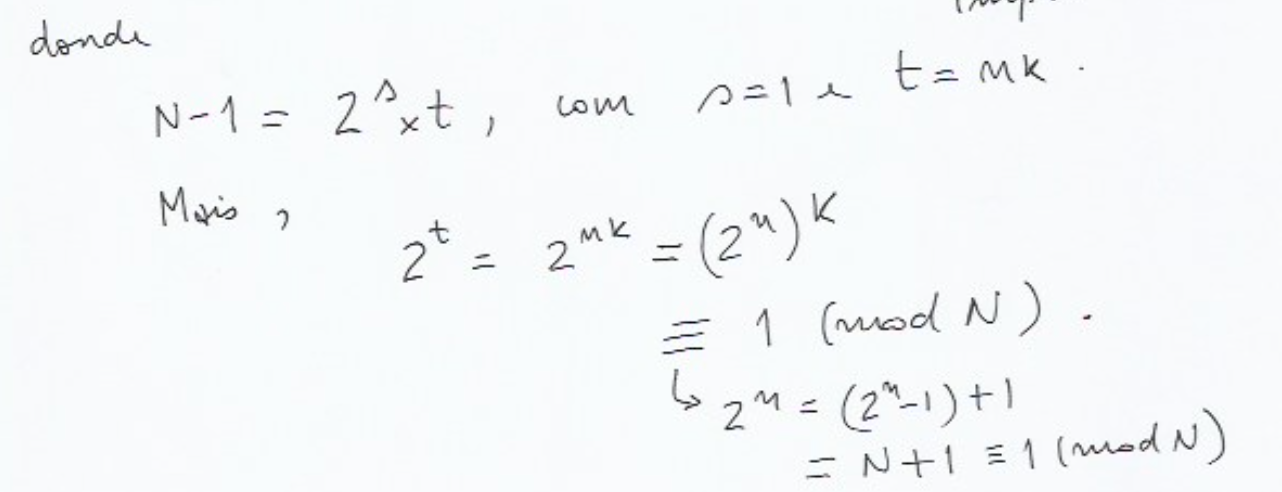 donde
N-1 = 2^s × t, com s=1 e t = nk.
Mais,
2^t = 2^{nk} = (2^n)^k
≡ 1 (mod N).
↳ 2^n = (2^n-1)+1
= N+1 ≡ 1 (mod N)